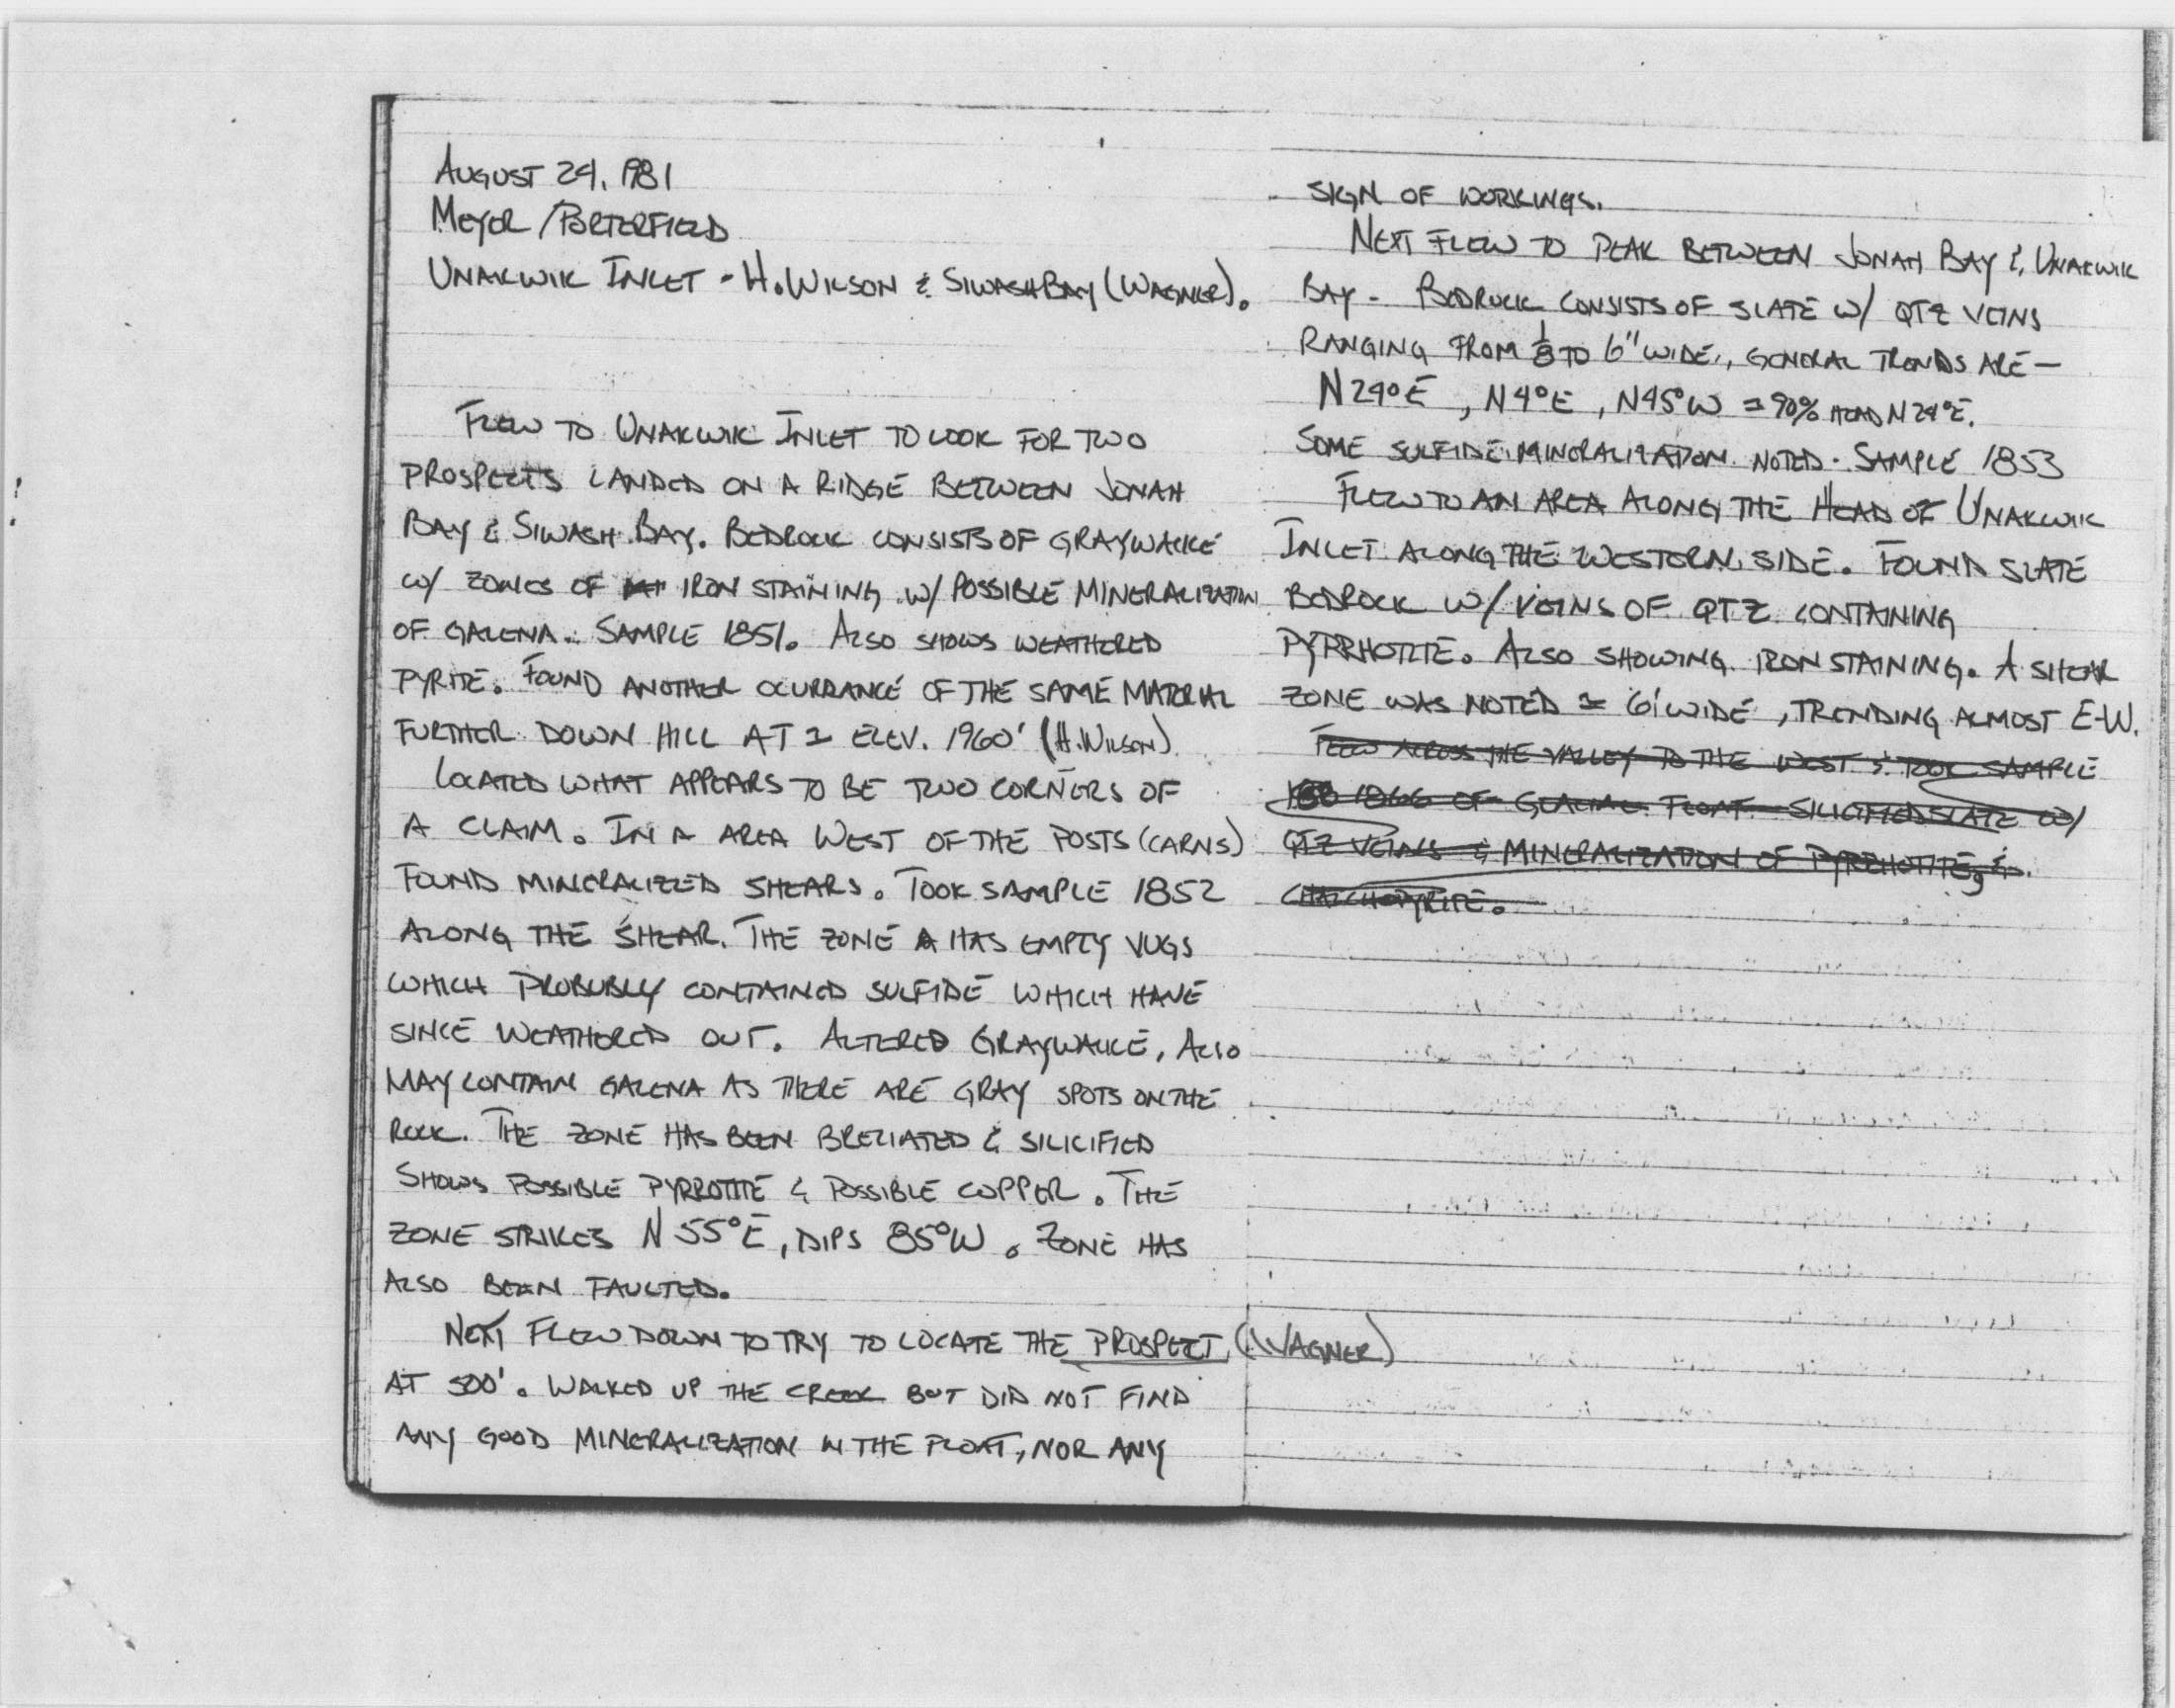 AUGUST 24, 1981
MEYER / PORTERFIELD
UNAKWIK INLET - H. WILSON & SIWASH BAY (WAGNER).
FLEW TO UNAKWIK INLET TO LOOK FOR TWO
PROSPECTS LANDED ON A RIDGE BETWEEN JONAH
BAY & SIWASH BAY. BEDROCK CONSISTS OF GRAYWACKE
W/ ZONES OF IRON STAINING W/ POSSIBLE MINERALIZATION
OF GALENA. SAMPLE 1851. ALSO SHOWS WEATHERED
PYRITE. FOUND ANOTHER OCURRANCE OF THE SAME MATERIAL
FURTHER DOWN HILL AT ≃ ELEV. 1960' (H. WILSON)
LOCATED WHAT APPEARS TO BE TWO CORNERS OF
A CLAIM. IN A AREA WEST OF THE POSTS (CARNS)
FOUND MINERALIZED SHEARS. TOOK SAMPLE 1852
ALONG THE SHEAR. THE ZONE HAS EMPTY VUGS
WHICH PROBUBLY CONTAINED SULFIDE WHICH HAVE
SINCE WEATHERED OUT. ALTERED GRAYWACKE, ALSO
MAY CONTAIN GALENA AS THERE ARE GRAY SPOTS ON THE
ROCK. THE ZONE HAS BEEN BRECIATED & SILICIFIED
SHOWS POSSIBLE PYRROTITE & POSSIBLE COPPER. THE
ZONE STRIKES N 55°E, DIPS 85°W. ZONE HAS
ALSO BEEN FAULTED.
NEXT FLEW DOWN TO TRY TO LOCATE THE PROSPECT (WAGNER)
AT 500'. WALKED UP THE CREEK BUT DID NOT FIND
ANY GOOD MINERALIZATION IN THE FLOAT, NOR ANY
SIGN OF WORKINGS.
NEXT FLEW TO PEAK BETWEEN JONAH BAY & UNAKWIK
BAY - BEDROCK CONSISTS OF SLATE W/ QTZ VEINS
RANGING FROM 1/8 TO 6" WIDE, GENERAL TRENDS ARE —
N24°E, N4°E, N45°W ≃ 90% HEAD N24°E.
SOME SULFIDE MINERALIZATION NOTED. SAMPLE 1853
FLEW TO AN AREA ALONG THE HEAD OF UNAKWIK
INLET ALONG THE WESTERN SIDE. FOUND SLATE
BEDROCK W/ VEINS OF QTZ CONTAINING
PYRRHOTITE. ALSO SHOWING IRON STAINING. A SHEAR
ZONE WAS NOTED ≃ 6' WIDE, TRENDING ALMOST E-W.
FLEW ACROSS THE VALLEY TO THE WEST & TOOK SAMPLE
1866 OF GLACIAL FLOAT. SILICIFIED SLATE W/
QTZ VEINS & MINERALIZATION OF PYRRHOTITE, &
CHALCHOPYRITE.